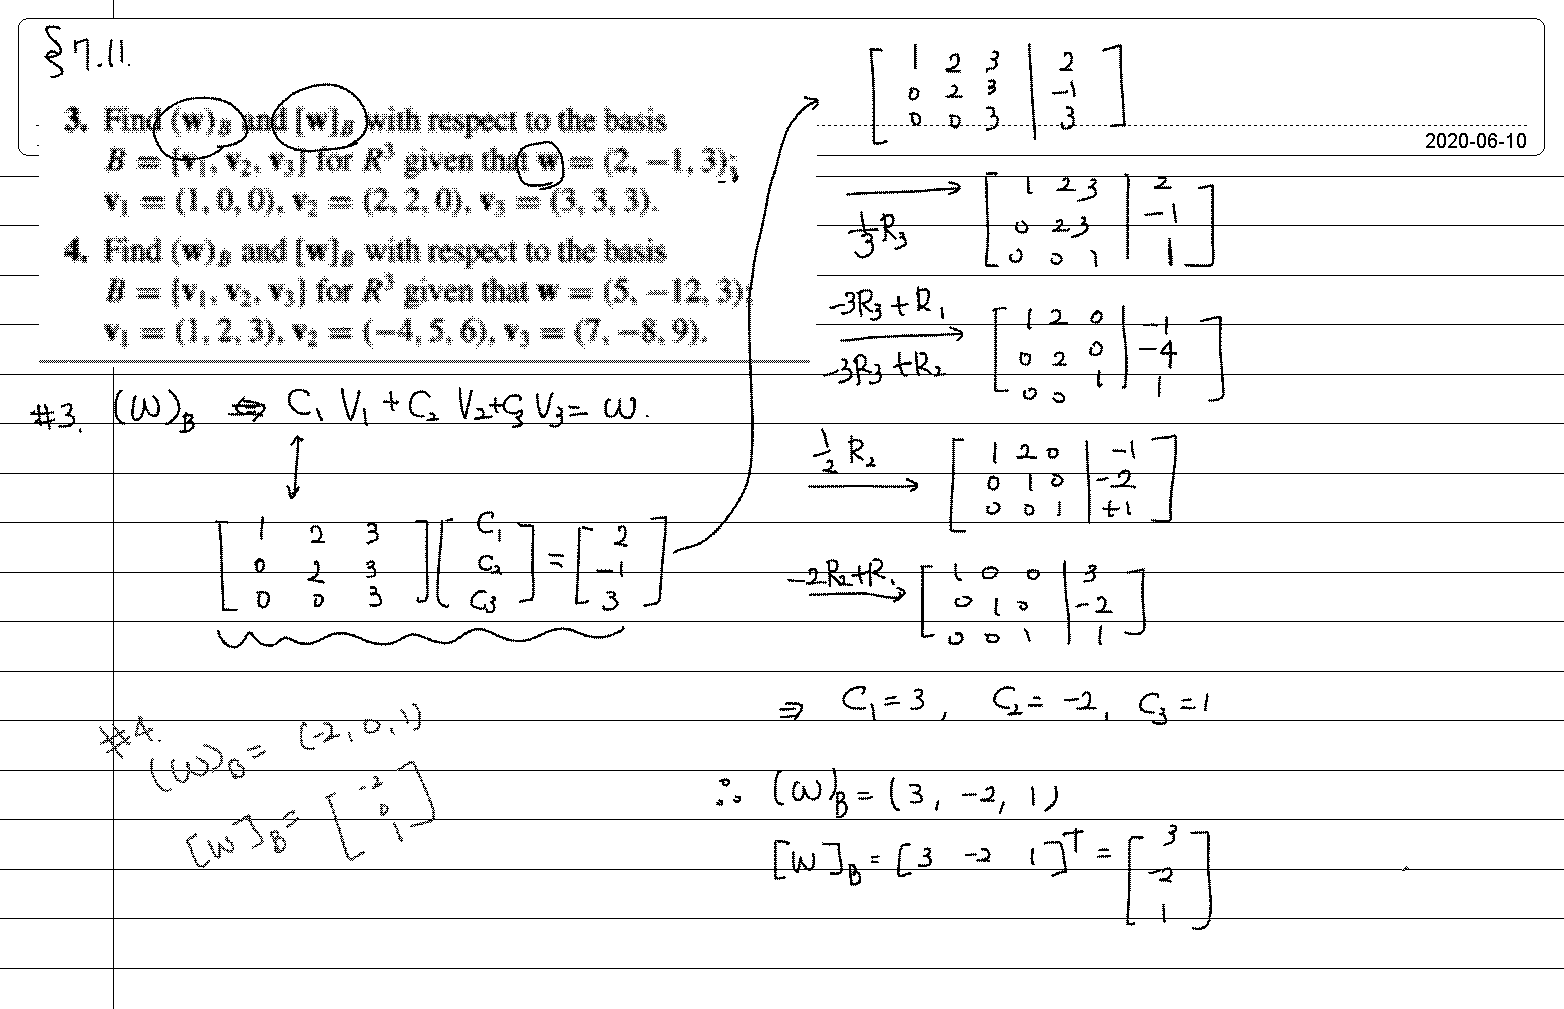 §7.11.
2020-06-10
3. Find (w)_B and [w]_B with respect to the basis
B = {v₁, v₂, v₃} for R³ given that w = (2, −1, 3);
v₁ = (1, 0, 0), v₂ = (2, 2, 0), v₃ = (3, 3, 3).
4. Find (w)_B and [w]_B with respect to the basis
B = {v₁, v₂, v₃} for R³ given that w = (5, −12, 3);
v₁ = (1, 2, 3), v₂ = (−4, 5, 6), v₃ = (7, −8, 9).
#3. (W)_B ⇔ C₁ V₁ + C₂ V₂ + C₃ V₃ = W.
↕
[ 1 2 3 ] [ C₁ ] = [ 2 ]
[ 0 2 3 ] [ C₂ ] = [ −1 ]
[ 0 0 3 ] [ C₃ ] = [ 3 ]
[ 1 2 3 | 2 ]
[ 0 2 3 | −1 ]
[ 0 0 3 | 3 ]
→ 1/3 R₃
[ 1 2 3 | 2 ]
[ 0 2 3 | −1 ]
[ 0 0 1 | 1 ]
−3R₃ + R₁
→
−3R₃ + R₂
[ 1 2 0 | −1 ]
[ 0 2 0 | −4 ]
[ 0 0 1 | 1 ]
1/2 R₂ →
[ 1 2 0 | −1 ]
[ 0 1 0 | −2 ]
[ 0 0 1 | +1 ]
−2R₂ + R₁ →
[ 1 0 0 | 3 ]
[ 0 1 0 | −2 ]
[ 0 0 1 | 1 ]
⇒ C₁ = 3, C₂ = −2, C₃ = 1
∴ (W)_B = (3, −2, 1)
[W]_B = [3 −2 1]ᵀ = [ 3
−2
1 ]
#4.
(W)_B = (−2, 0, 1)
[W]_B = [ −2
0
1 ]